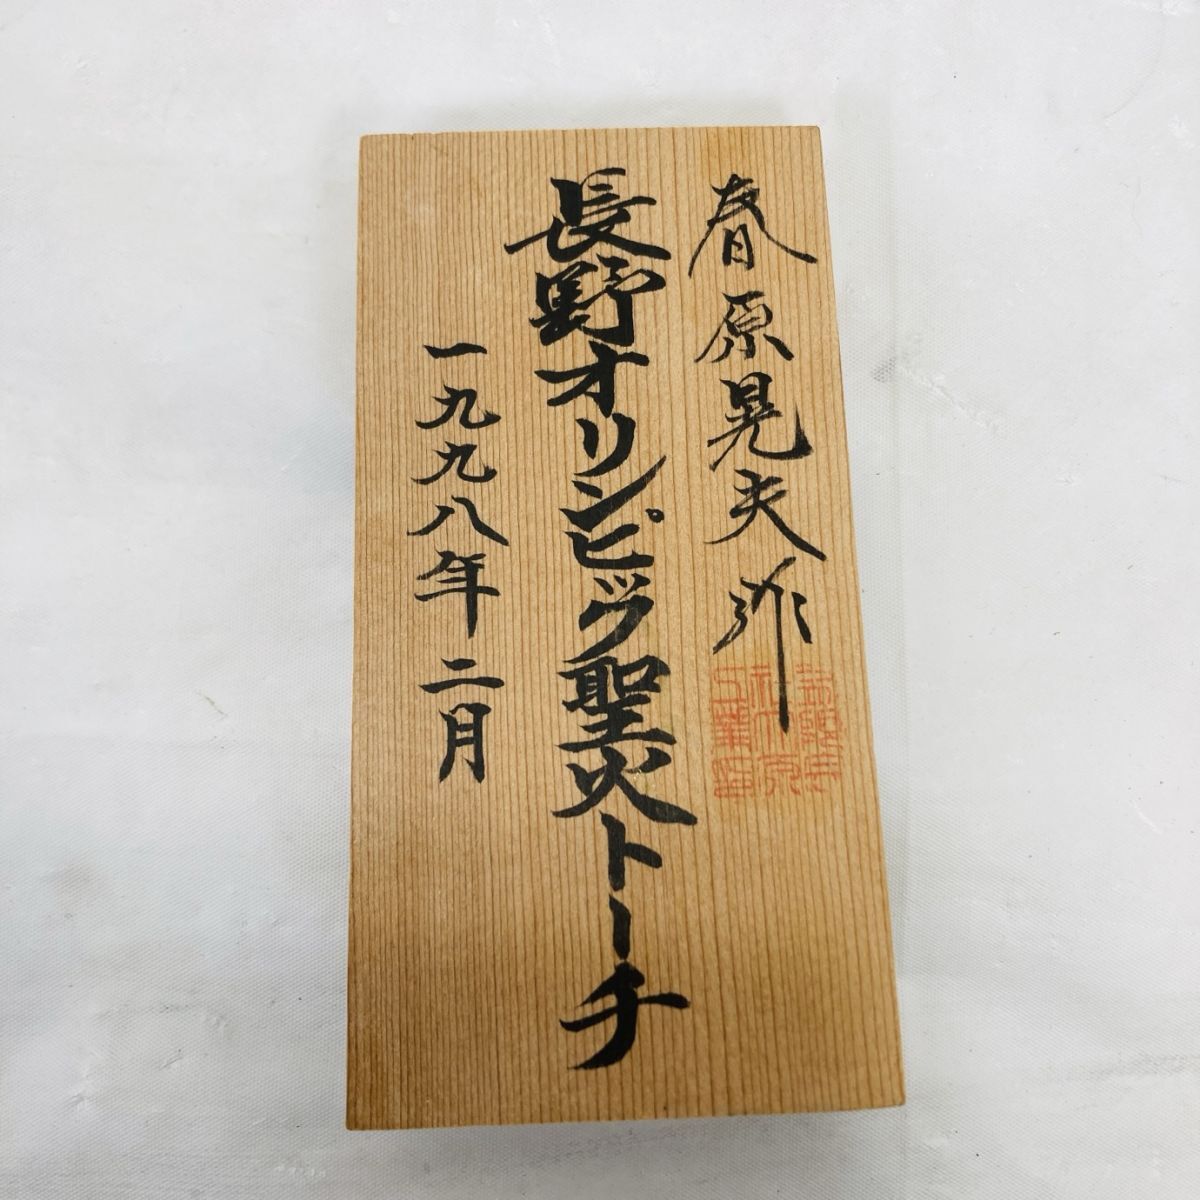 春原晃夫作
長野オリンピック聖火トーチ
一九九八年二月